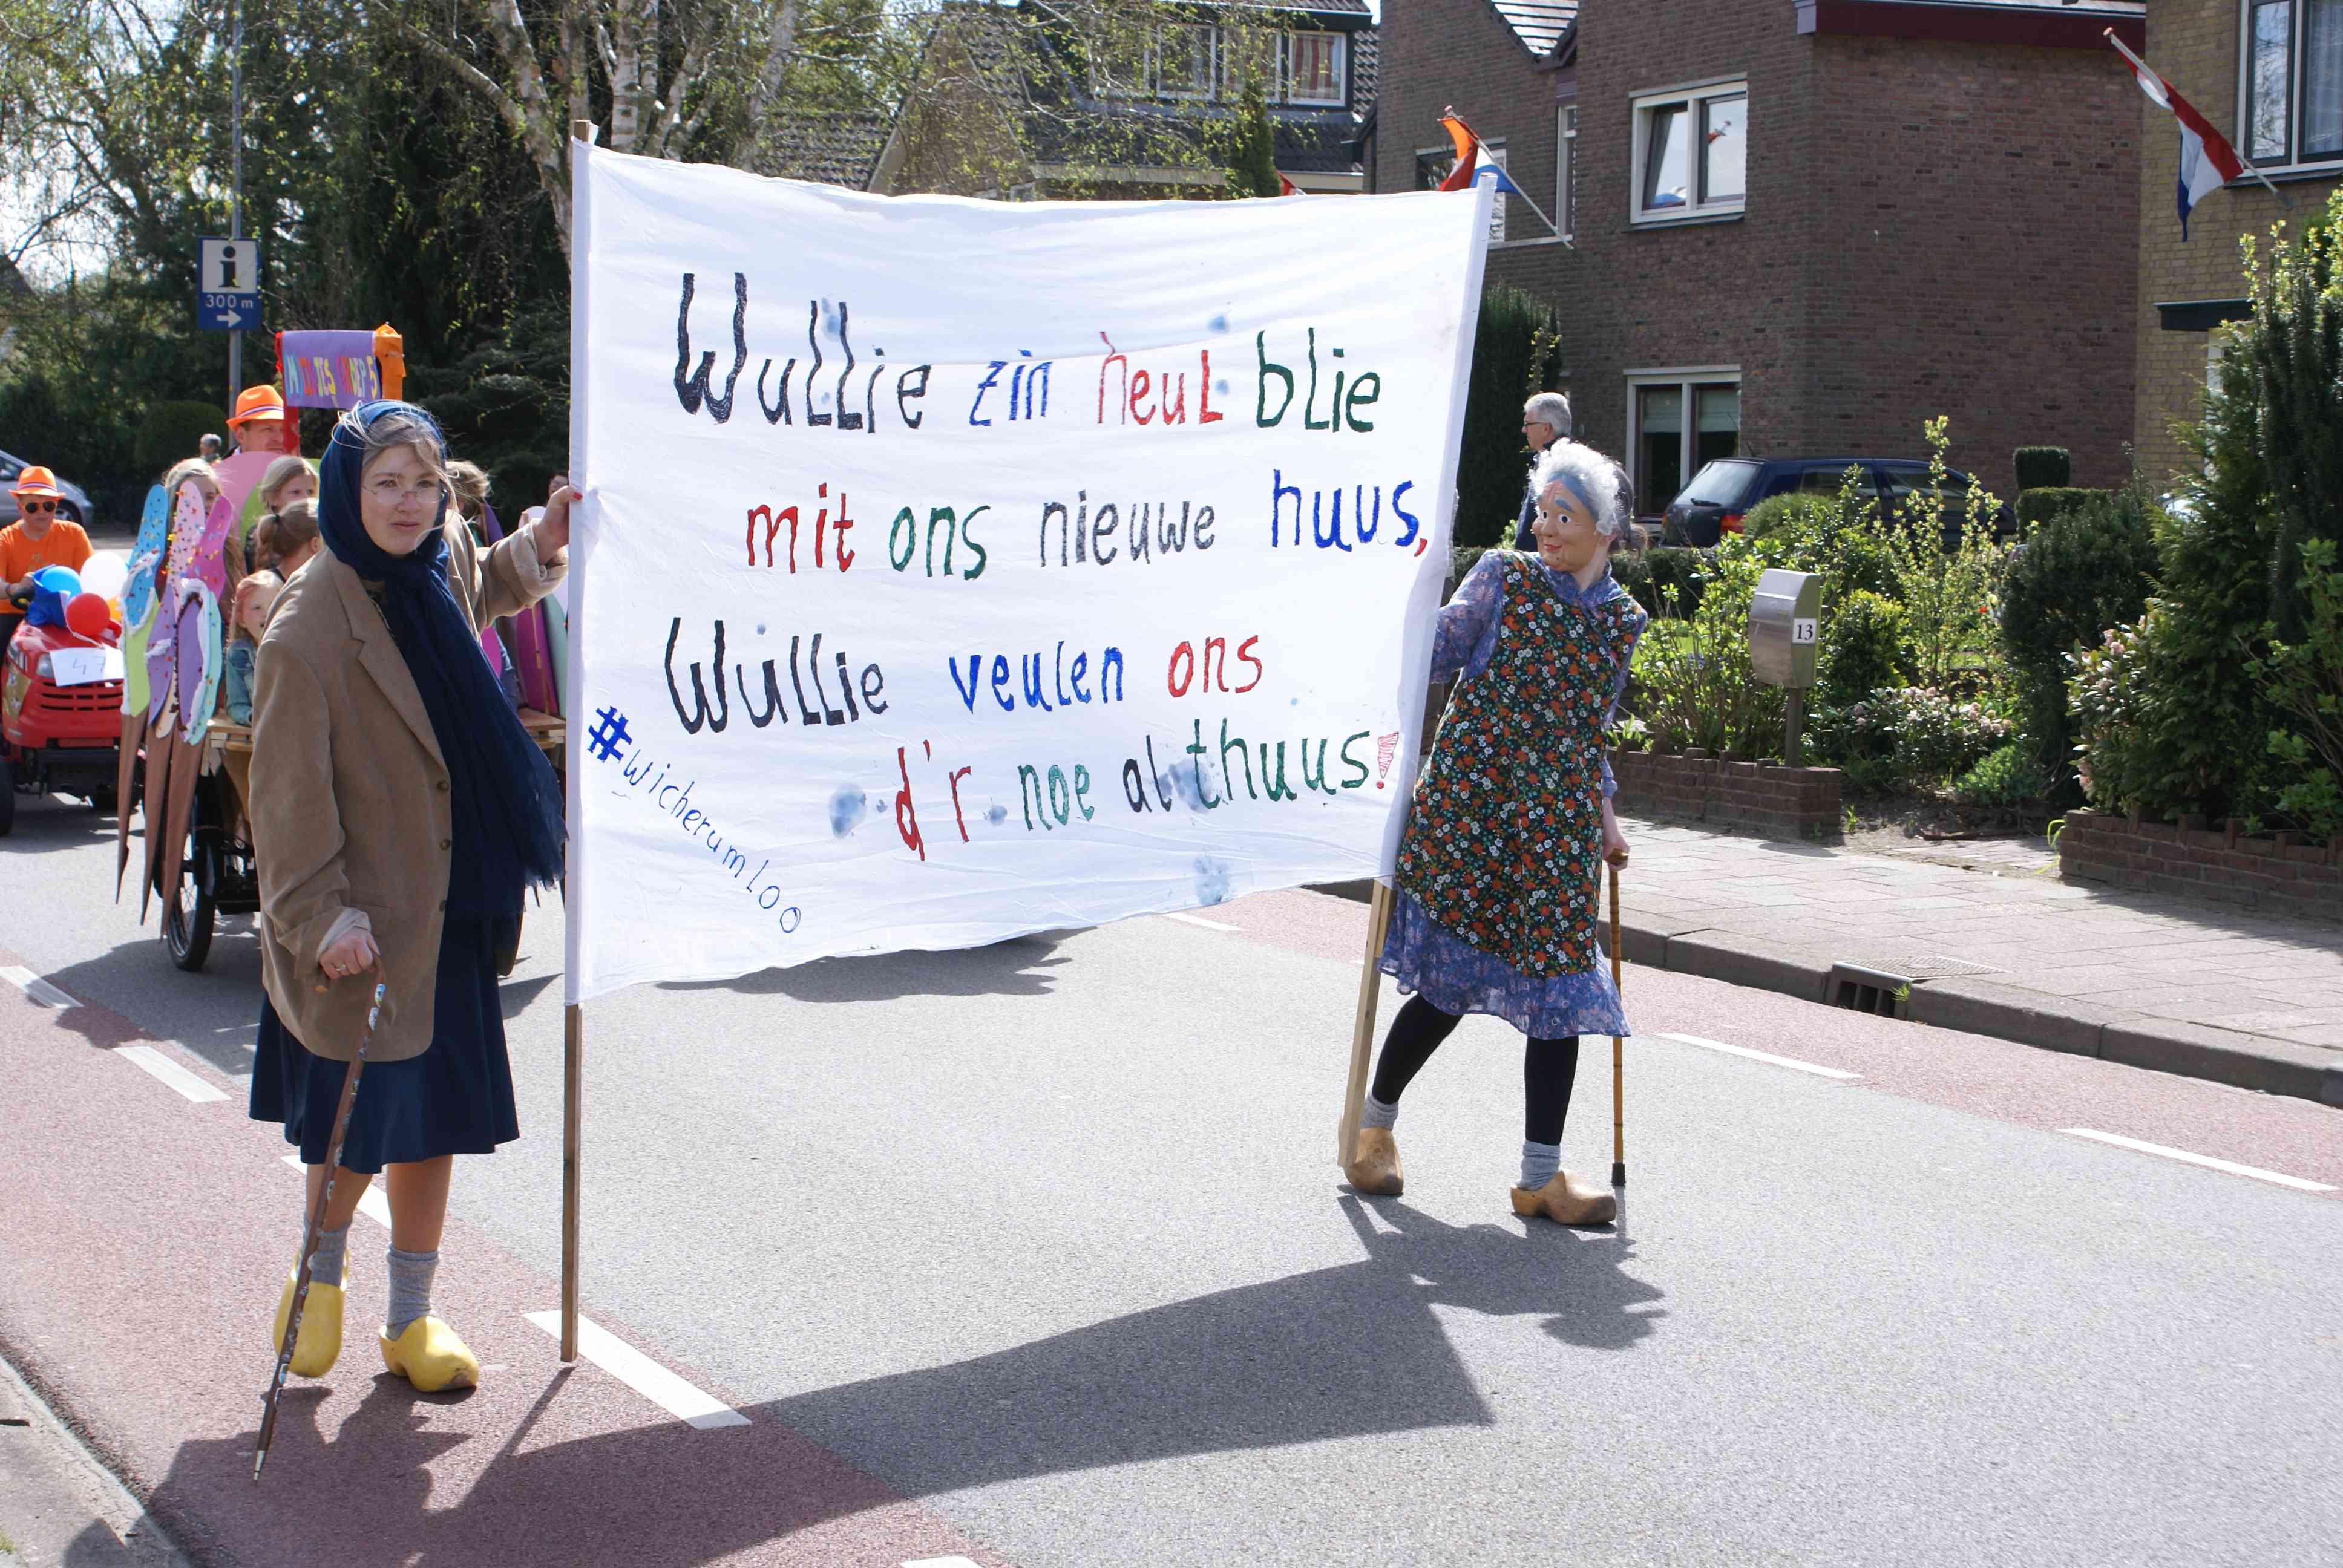 Wullie zin heul blie
mit ons nieuwe huus,
Wullie veulen ons
d'r noe al thuus!
#wicherumloo
i
300 m
13
47